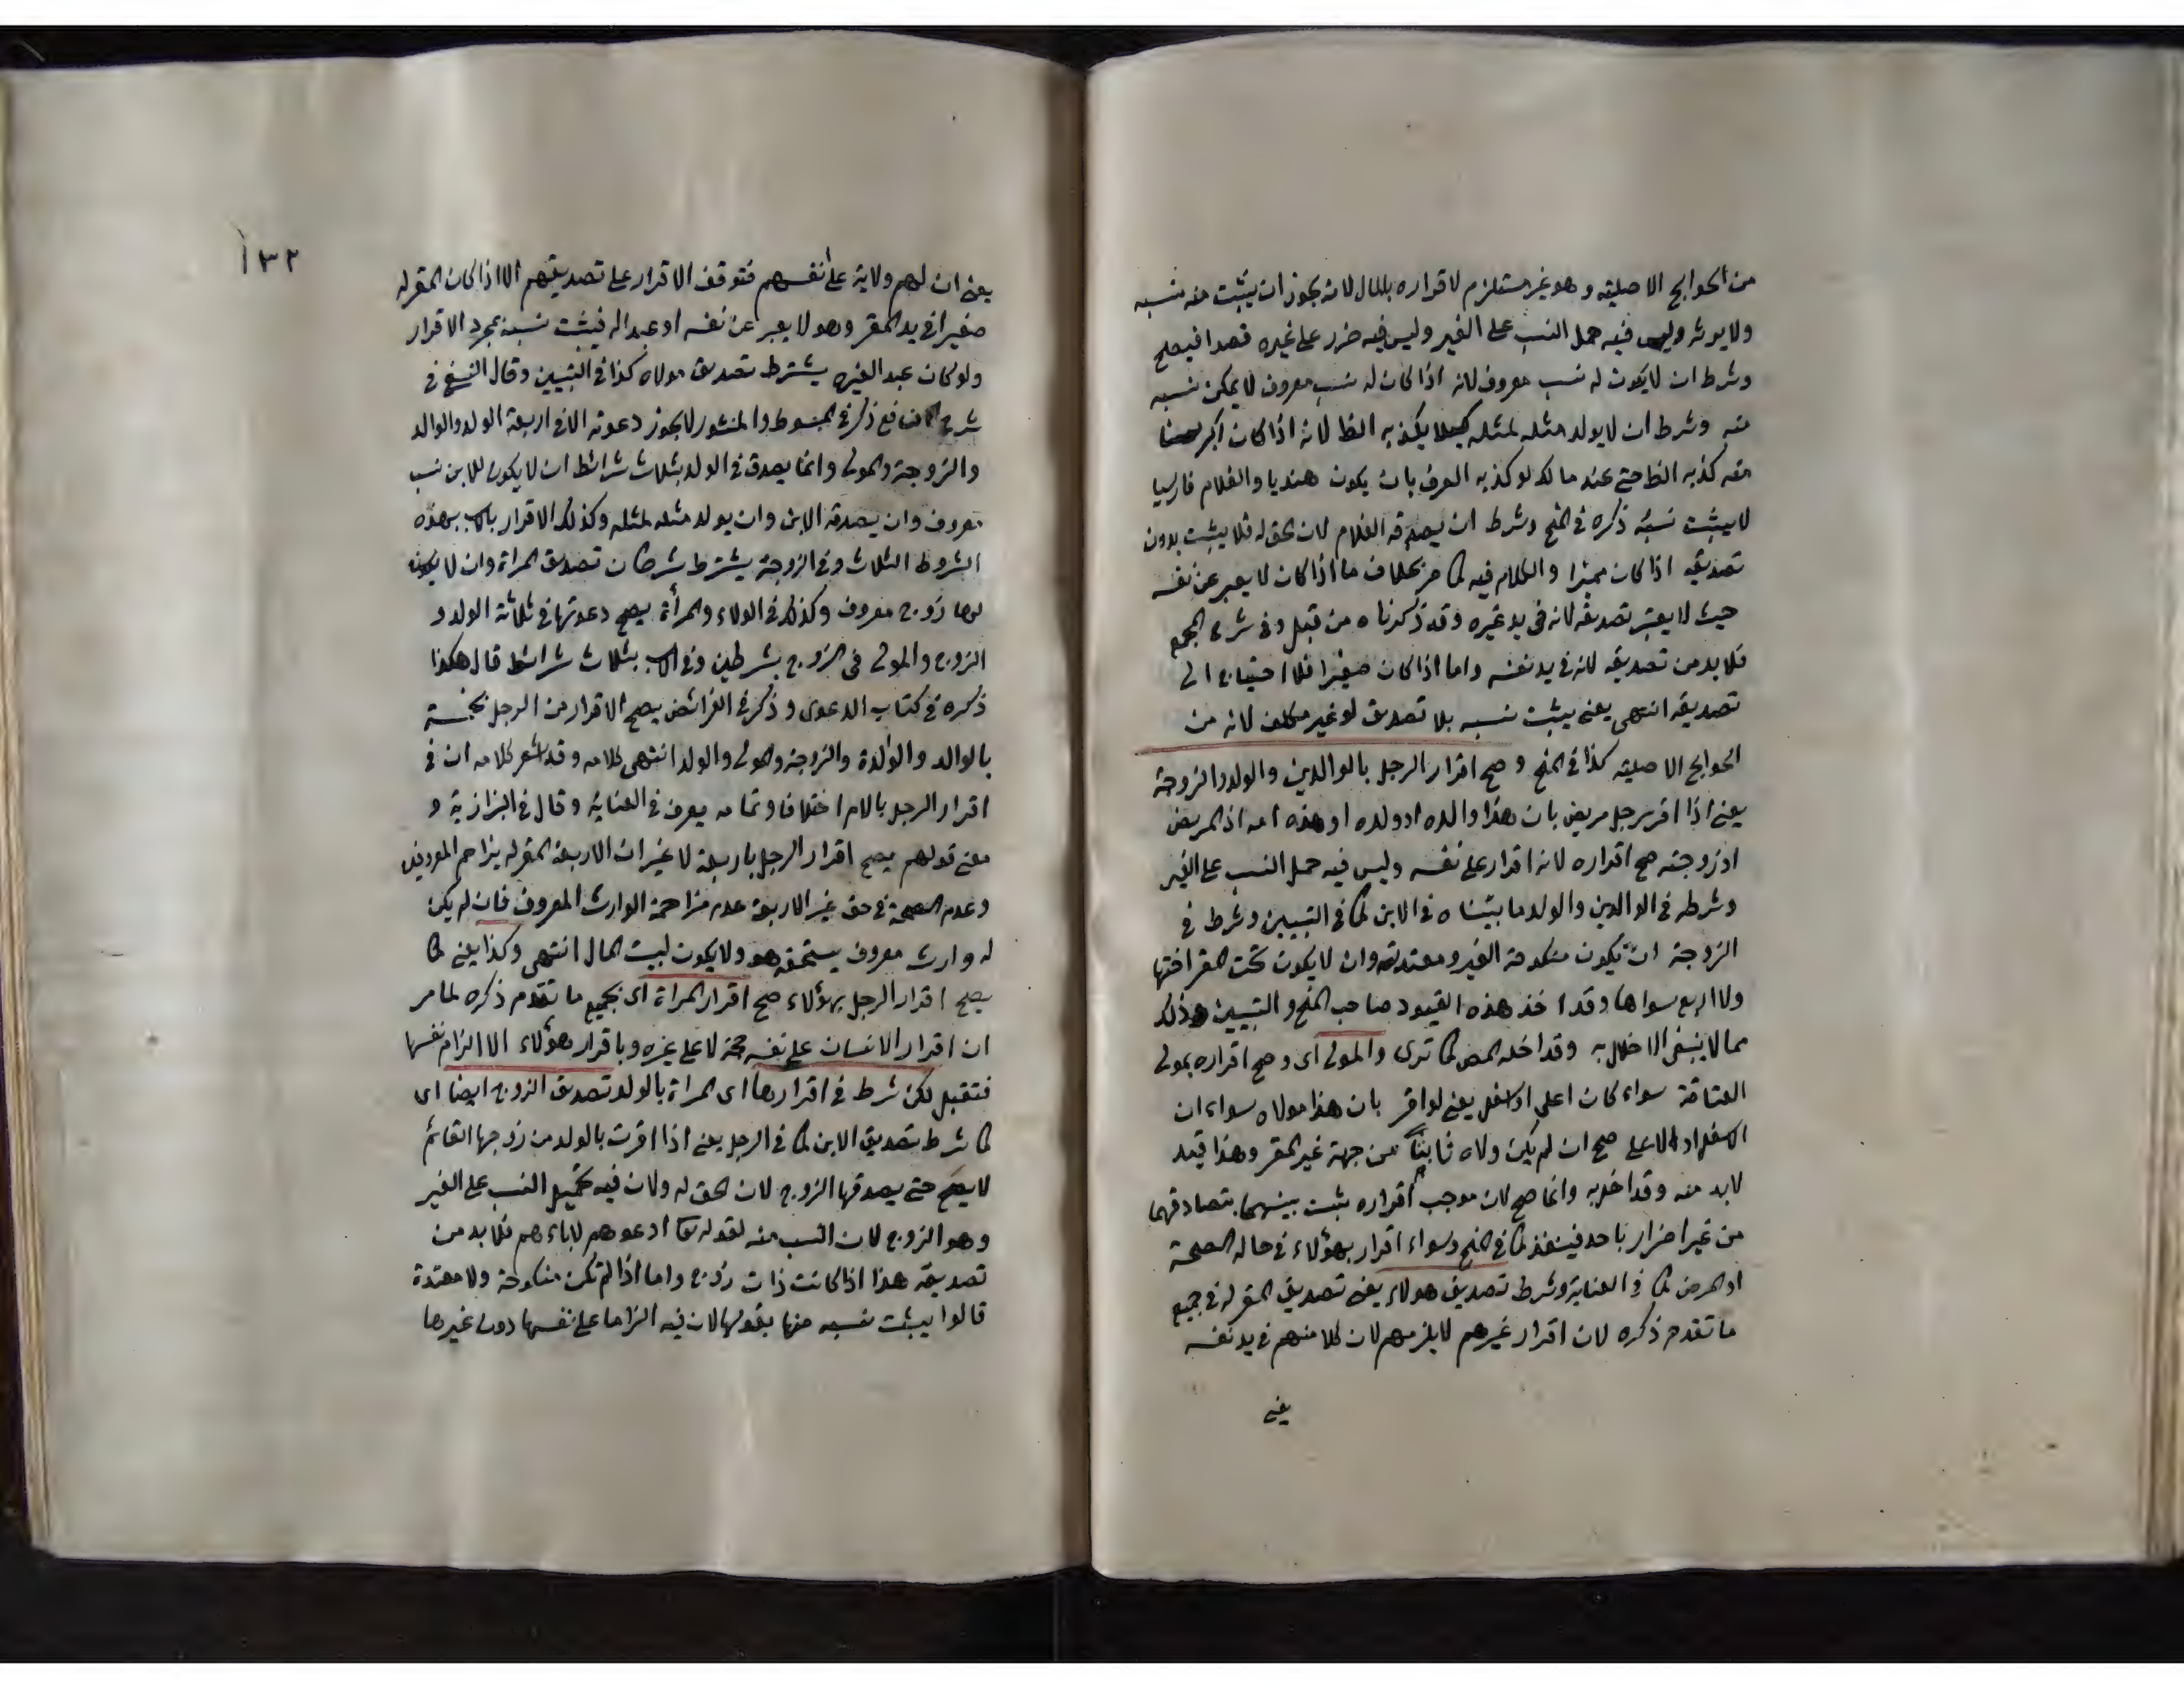 من الحوايج الاصلية وهو غير مستلزم لاقراره بالمال لانه يجوز ان يثبت منه نسبه
ولا يورث وليس فيه حمل النسب على الغير وليس فيه ضرر على غيره قصدا فيصلح
وشرط ان لا يكون له نسب معروف لانه اذا كان له نسب معروف لا يمكن نسبه
منه وشرط ان لا يولد مثله لمثله كيلا يكذبه الظ لانه اذا كان اكبر سنا
منه كذبه الظ حتى عند مالك لو كذبه العرف بان يكون هنديا والغلام فارسيا
لا يثبت نسبه ذكره في المنح وشرط ان يصدقه الغلام لان الحق له فلا يثبت بدون
تصديقه اذا كان مميزا والكلام فيه كما مر بخلاف ما اذا كان لا يعبر عن نفسه
حيث لا يعتبر تصديقه لانه في يد غيره وقد ذكرناه من قبل وفي شرح المجمع
فلا بد من تصديقه لانه في يد نفسه واما اذا كان صغيرا فلا احتياج الى
تصديقه انتهى يعني يثبت نسبه بلا تصديق لو غير مكلف لانه من
الحوايج الاصلية كذا في المنح وصح اقرار الرجل بالوالدين والولد والزوجة
يعني اذا اقر رجل مريض بان هذا والده او ولده او هذه امه اذ المريض
او زوجته صح اقراره لانه اقرار على نفسه وليس فيه حمل النسب على الغير
وشرط في الوالدين والولد ما بيناه في الابن كما في التبيين وشرط في
الزوجة ان تكون منكوحة الغير ومعتدته وان لا يكون تحت المقر اختها
ولا اربع سواها وقد اخذ هذه القيود صاحب المنح والتبيين وذلك
مما لا ينبغي الاخلال به وقد اخله المص كما ترى والمولى اى وصح اقراره بمولى
العتاقة سواء كان اعلى او اسفل يعني لو اقر بان هذا مولاه سواء ان
الاسفل او الاعلى صح ان لم يكن ولاه ثابتا من جهة غير المقر وهذا قيد
لا بد منه وقد اخل به وانما صح لان موجب اقراره يثبت بينهما بتصادقهما
من غير اضرار باحد فينفذ كما في المنح وسواء اقرار بهؤلاء في حالة الصحة
او المرض كما في العناية وشرط تصديق هولاء يعني تصديق المقر له في جميع
ما تقدم ذكره لان اقرار غيرهم لا يلزمهم لان كلا منهم في يد نفسه
يعني
١٣٢
يعني ان لهم ولاية على انفسهم فتوقف الاقرار على تصديقهم الا اذا كان المقر له
صغيرا في يد المقر وهو لا يعبر عن نفسه او عبدا له فيثبت نسبه بمجرد الاقرار
ولو كان عبد الغيره يشترط تصديق مولاه كذا في التبيين وقال النسفي في
شرح النافع ذكر في المبسوط والمنشور لا يجوز دعوته الا في اربعة الولد والوالد
والزوجة والمولى وانما يصدق في الولد بثلاث شرائط ان لا يكون للابن نسب
معروف وان يصدقه الابن وان يولد مثله لمثله وكذلك الاقرار بالاب بهذه
الشروط الثلاث وفي الزوجة يشترط شرطان تصديق المراة وان لا يكون
لها زوج معروف وكذلك في الولاء والمرأة يصح دعوتها في ثلاثة الولد و
الزوج والمولى في الزوج بشرطين وفي الاب بثلاث شرائط قال هكذا
ذكره في كتاب الدعوى وذكر في الفرائض يصح الاقرار من الرجل بخمسة
بالوالد والوالدة والزوجة والمولى والولد انتهى كلامه وقد اشعر كلامه ان في
اقرار الرجل بالام اختلافا وتمامه يعرف في العناية وقال في البزازية و
معنى قولهم يصح اقرار الرجل باربعة لا غير ان الاربعة المقر له يزاحم المعروفين
وعدم الصحة في حق غير الاربعة عدم مزاحمة الوارث المعروف فان لم يكن
له وارث معروف يستحقه هو ولا يكون لبيت المال انتهى وكذا يعني كما
يصح اقرار الرجل بهؤلاء صح اقرار المراة اى بجميع ما تقدم ذكره لما مر
ان اقرار الانسان على نفسه حجة لا على غيره وباقرار هؤلاء الا الزام نفسها
فتقبل لكن شرط في اقرارها اى المراة بالولد تصديق الزوج ايضا اى
كما شرط تصديق الابن كما في الرجل يعني اذا اقرت بالولد من زوجها القائم
لا يصح حتى يصدقها الزوج لان الحق له ولان فيه تحميل النسب على الغير
وهو الزوج لان النسب منه لقوله تعا ادعوهم لاباءهم فلا بد من
تصديقه هذا اذا كانت ذات زوج واما اذا لم تكن منكوحة ولا معتدة
قالوا يثبت نسبه منها بقولها لان فيه الزاما على نفسها دون غيرها